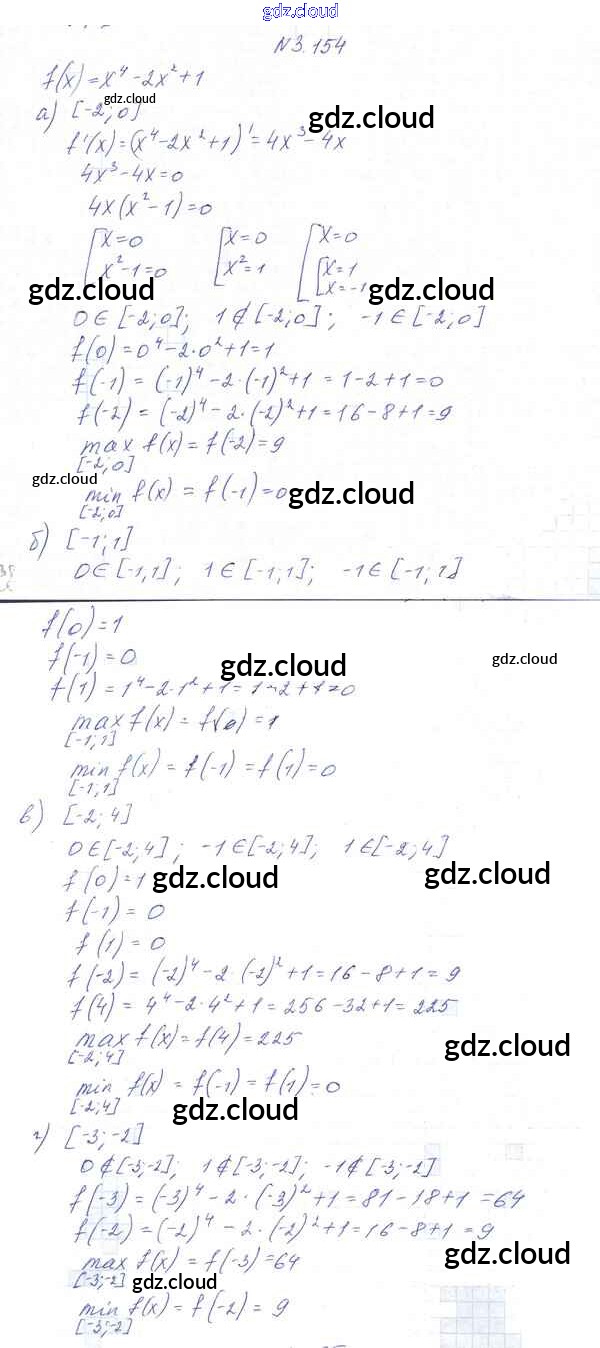 gdz.cloud
N 3.154
f(x)=x⁴-2x²+1
gdz.cloud
а) [-2;0]
gdz.cloud
f'(x)=(x⁴-2x²+1)'=4x³-4x
4x³-4x=0
4x(x²-1)=0
[x=0 [x=0 [x=0
x²-1=0 x²=1 [x=1
x=-1
gdz.cloud gdz.cloud
0∈[-2;0]; 1∉[-2;0]; -1∈[-2;0]
f(0)=0⁴-2·0²+1=1
f(-1)=(-1)⁴-2·(-1)²+1=1-2+1=0
f(-2)=(-2)⁴-2·(-2)²+1=16-8+1=9
max f(x)=f(-2)=9
[-2;0]
gdz.cloud
min f(x)=f(-1)=0
gdz.cloud
[-2;0]
б) [-1;1]
0∈[-1,1]; 1∈[-1;1]; -1∈[-1;1]
f(0)=1
f(-1)=0
gdz.cloud gdz.cloud
f(1)=1⁴-2·1²+1=1-2+1=0
max f(x)=f(0)=1
[-1;1]
min f(x)=f(-1)=f(1)=0
[-1,1]
в) [-2;4]
0∈[-2;4]; -1∈[-2;4]; 1∈[-2;4]
f(0)=1
gdz.cloud gdz.cloud
f(-1)=0
f(1)=0
f(-2)=(-2)⁴-2·(-2)²+1=16-8+1=9
f(4)=4⁴-2·4²+1=256-32+1=225
max f(x)=f(4)=225
[-2;4]
gdz.cloud
min f(x)=f(-1)=f(1)=0
[-2;4]
gdz.cloud
г) [-3;-2]
0∉[-3;-2]; 1∉[-3;-2]; -1∉[-3;-2]
f(-3)=(-3)⁴-2·(-3)²+1=81-18+1=64
f(-2)=(-2)⁴-2·(-2)²+1=16-8+1=9
max f(x)=f(-3)=64
gdz.cloud
[-3;-2]
gdz.cloud
min f(x)=f(-2)=9
[-3;-2]